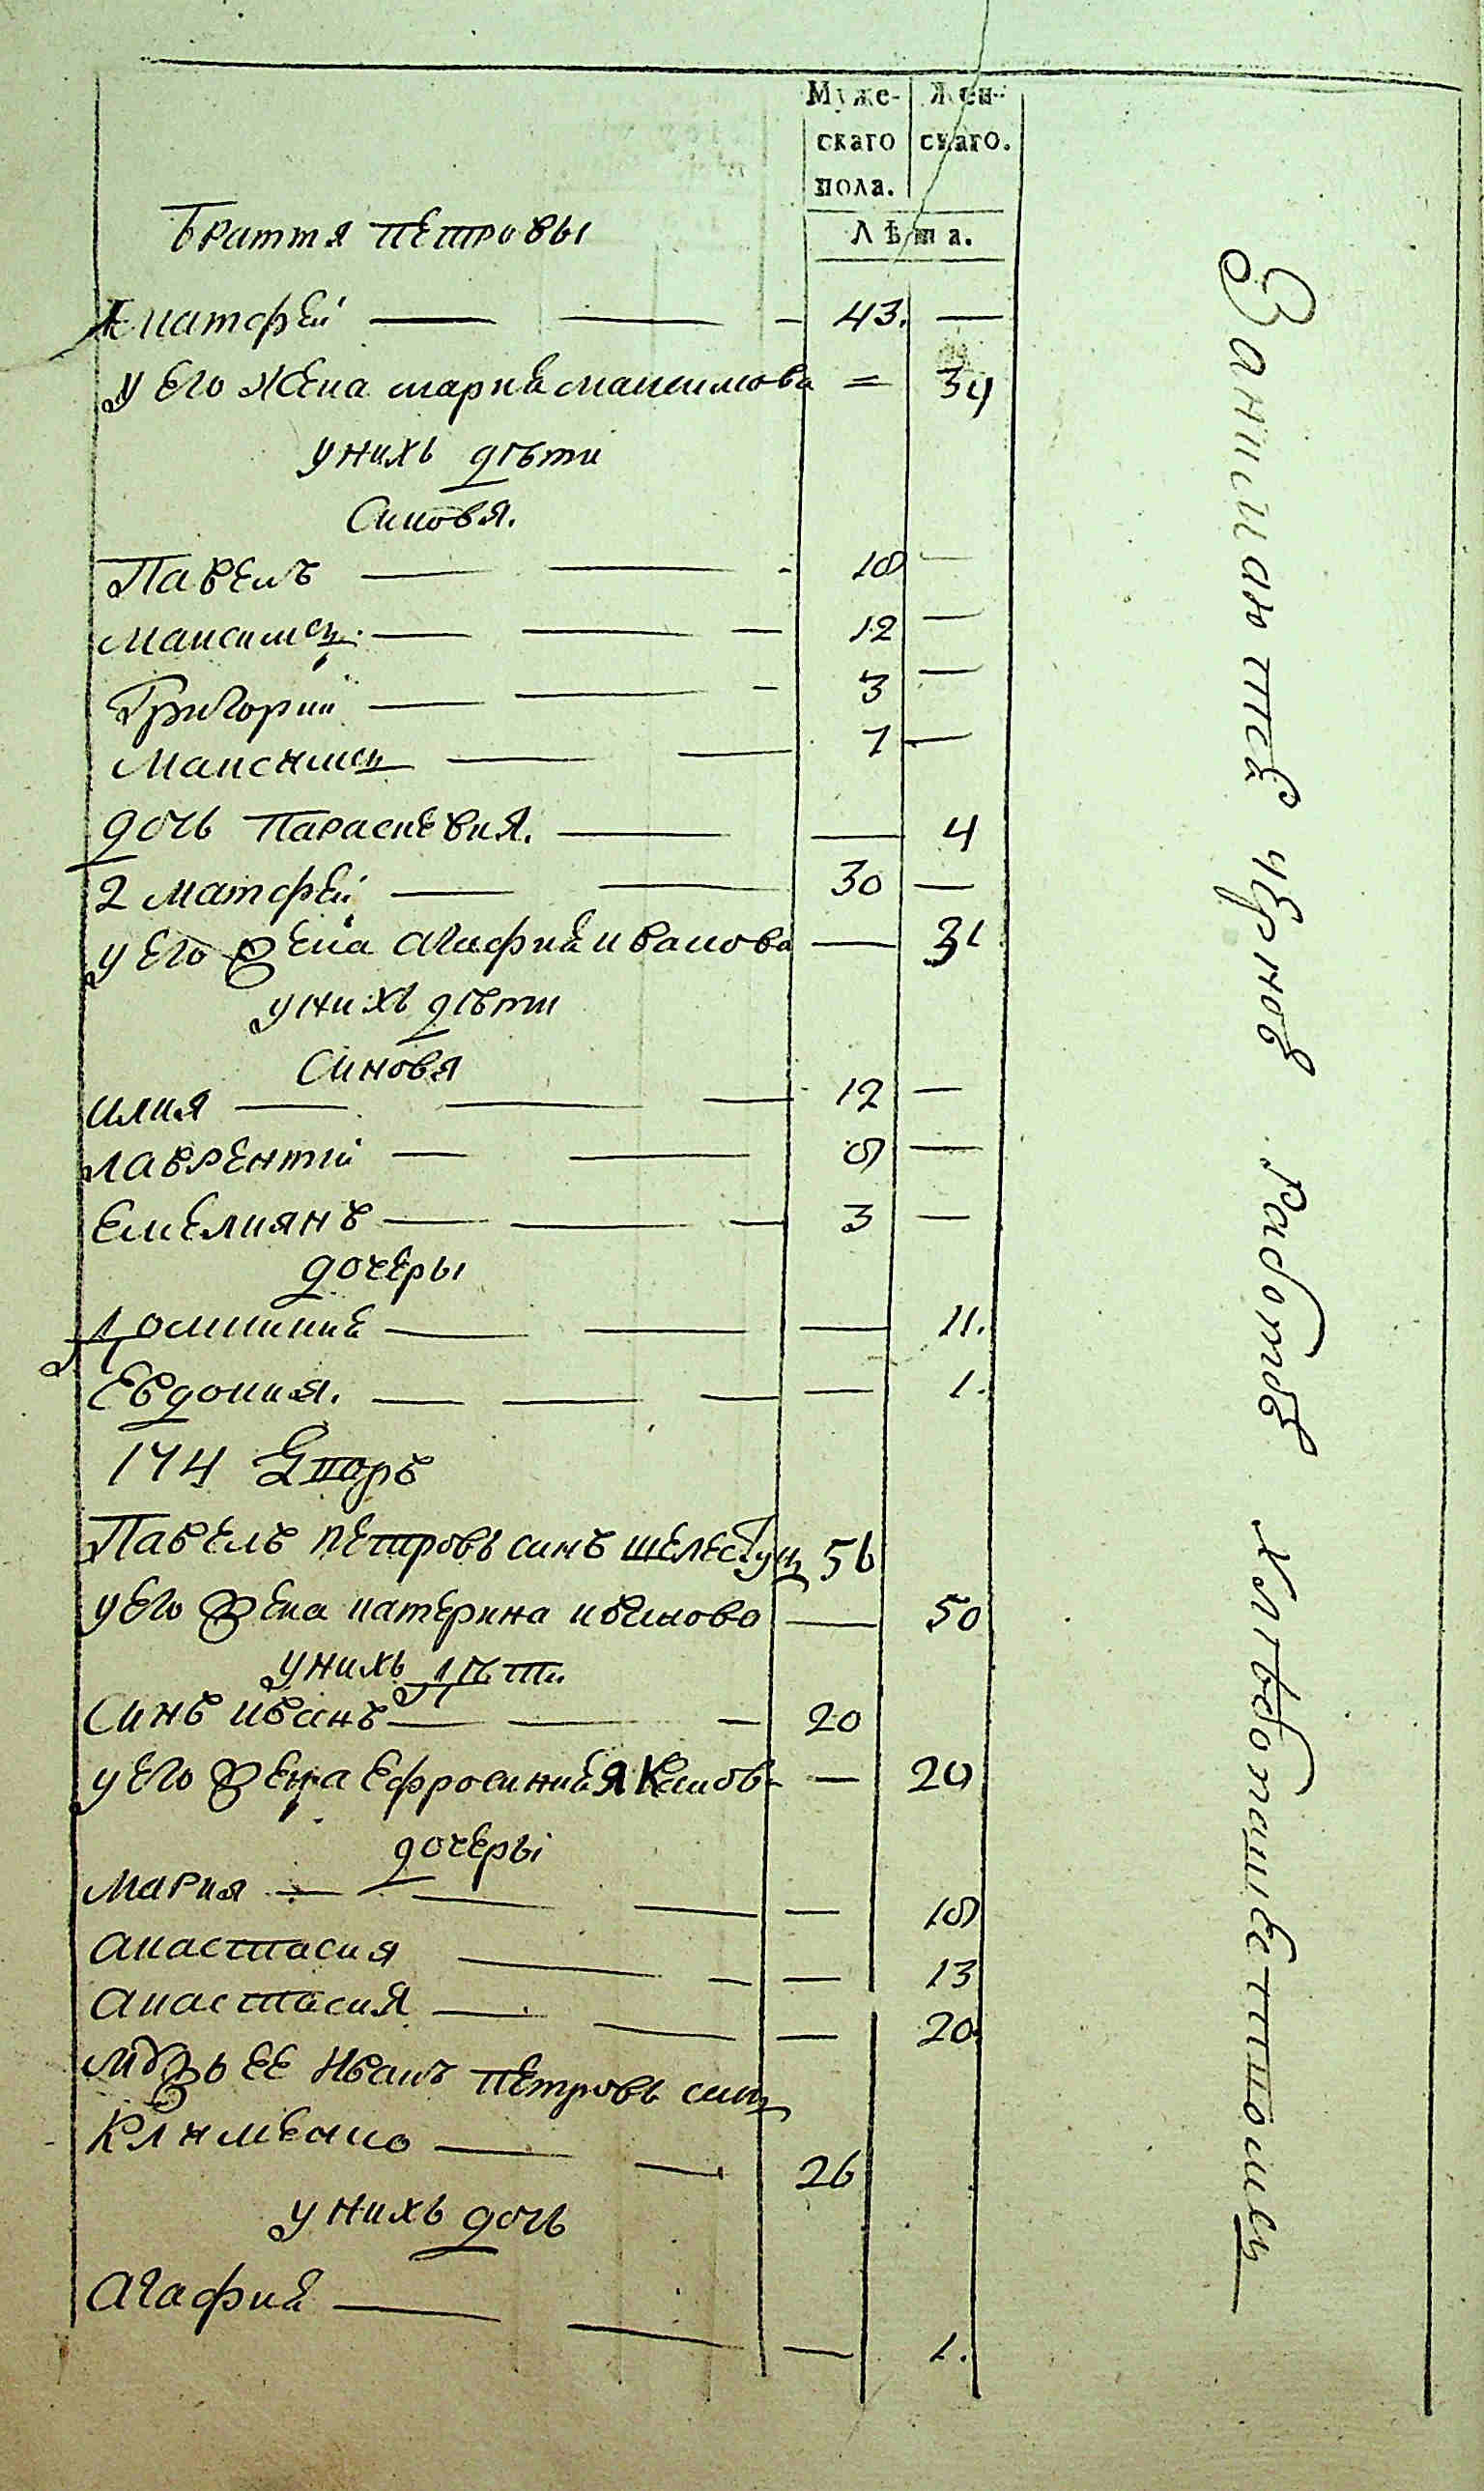 Муже- Жен-
скаго скаго.
пола.
Лѣта.
Браття петровы
1 матфей 43. —
у его жена мариѣ максимова = 34
у нихъ дѣти
Синовя.
Павелъ 18 —
Максимъ 12 —
Григорий 3 —
Максимъ 1 —
дочь Параскевия. — 4
2 матфей 30 —
у его жена агафиѣ иванова — 31
у нихъ дѣти
Синовя
илия 12 —
лаврентий 8 —
емелиянъ 3 —
дочеры
Домникиѣ — 11.
Евдокия. — 1.
174 Дворъ
Павелъ петровъ синъ шелестунъ 56
у его жена катерина — 50
у нихъ дѣти
Синъ иванъ 20
у его жена Ефросиниѣ — 20
дочеры
Мария — 18
анастасия — 13
анастасия — 20
мужъ ее иванъ петровъ синъ
Клименко 26
у нихъ дочь
агафиѣ — 1.
Занимаютце чорной работой хлѣбопашетвомъ